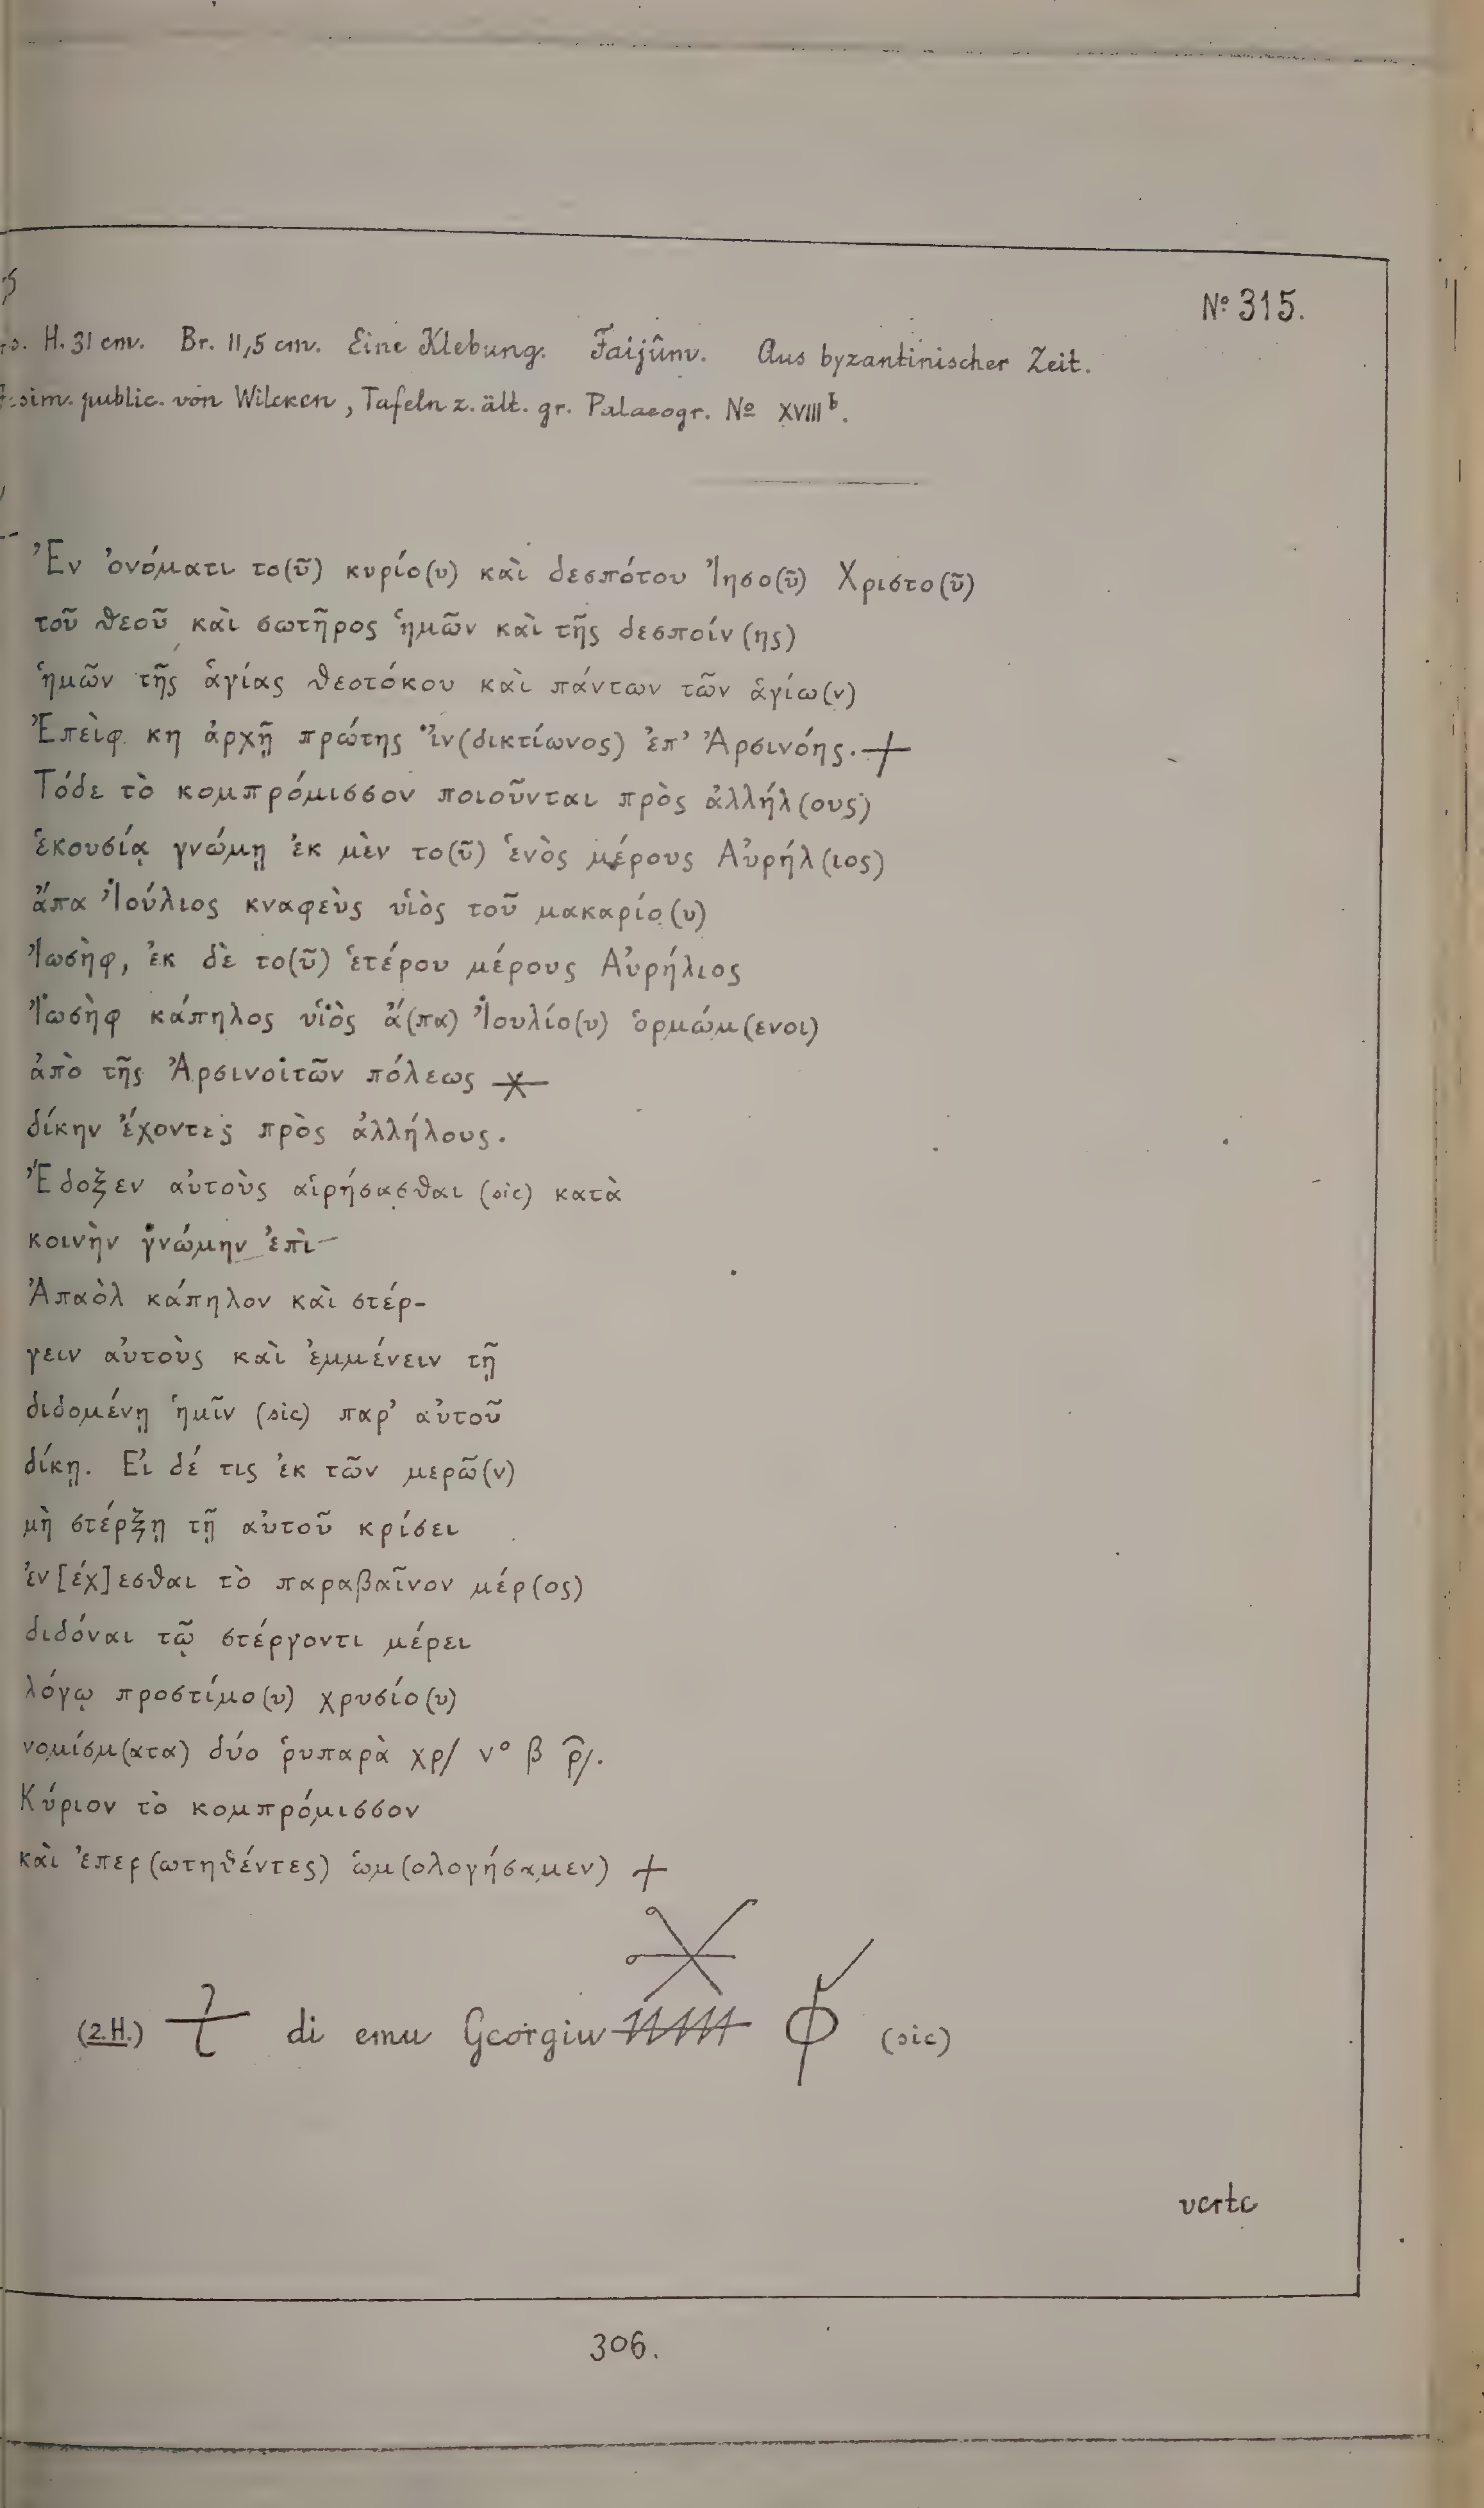 № 315.
H. 31 cm. Br. 11,5 cm. Eine Klebung. Faijûm. Aus byzantinischer Zeit.
public. von Wilcken, Tafeln z. ält. gr. Palaeogr. № XVIIIᵇ.
Ἐν ὀνόματι το(ῦ) κυρίο(υ) καὶ δεσπότου Ἰησο(ῦ) Χριστο(ῦ)
τοῦ θεοῦ καὶ σωτῆρος ἡμῶν καὶ τῆς δεσποίν(ης)
ἡμῶν τῆς ἁγίας θεοτόκου καὶ πάντων τῶν ἁγίω(ν)
Ἐπεὶφ κη ἀρχῇ πρώτης ἰν(δικτίωνος) ἐπ’ Ἀρσινόης. +
Τόδε τὸ κομπρόμισσον ποιοῦνται πρὸς ἀλλήλ(ους)
ἑκουσίᾳ γνώμῃ ἐκ μὲν το(ῦ) ἑνὸς μέρους Αὐρήλ(ιος)
ἄπα Ἰούλιος κναφεὺς υἱὸς τοῦ μακαρίο(υ)
Ἰωσὴφ, ἐκ δὲ το(ῦ) ἑτέρου μέρους Αὐρήλιος
Ἰωσὴφ κάπηλος υἱὸς ἄ(πα) Ἰουλίο(υ) ὁρμώμ(ενοι)
ἀπὸ τῆς Ἀρσινοϊτῶν πόλεως
δίκην ἔχοντες πρὸς ἀλλήλους.
Ἔδοξεν αὐτοὺς αἱρήσασθαι (sic) κατὰ
κοινὴν γνώμην ἐπὶ
Ἀπαὸλ κάπηλον καὶ στέρ-
γειν αὐτοὺς καὶ ἐμμένειν τῇ
διδομένῃ ἡμῖν (sic) παρ’ αὐτοῦ
δίκῃ. Εἰ δέ τις ἐκ τῶν μερῶ(ν)
μὴ στέρξῃ τῇ αὐτοῦ κρίσει
ἐν[έχ]εσθαι τὸ παραβαῖνον μέρ(ος)
διδόναι τῷ στέργοντι μέρει
λόγῳ προστίμο(υ) χρυσίο(υ)
νομίσμ(ατα) δύο ῥυπαρὰ χρ/ ν° β ρ/.
Κύριον τὸ κομπρόμισσον
καὶ ἐπερ(ωτηθέντες) ὡμ(ολογήσαμεν) +
(2.H.) di emu Georgiu (sic)
verte
306.